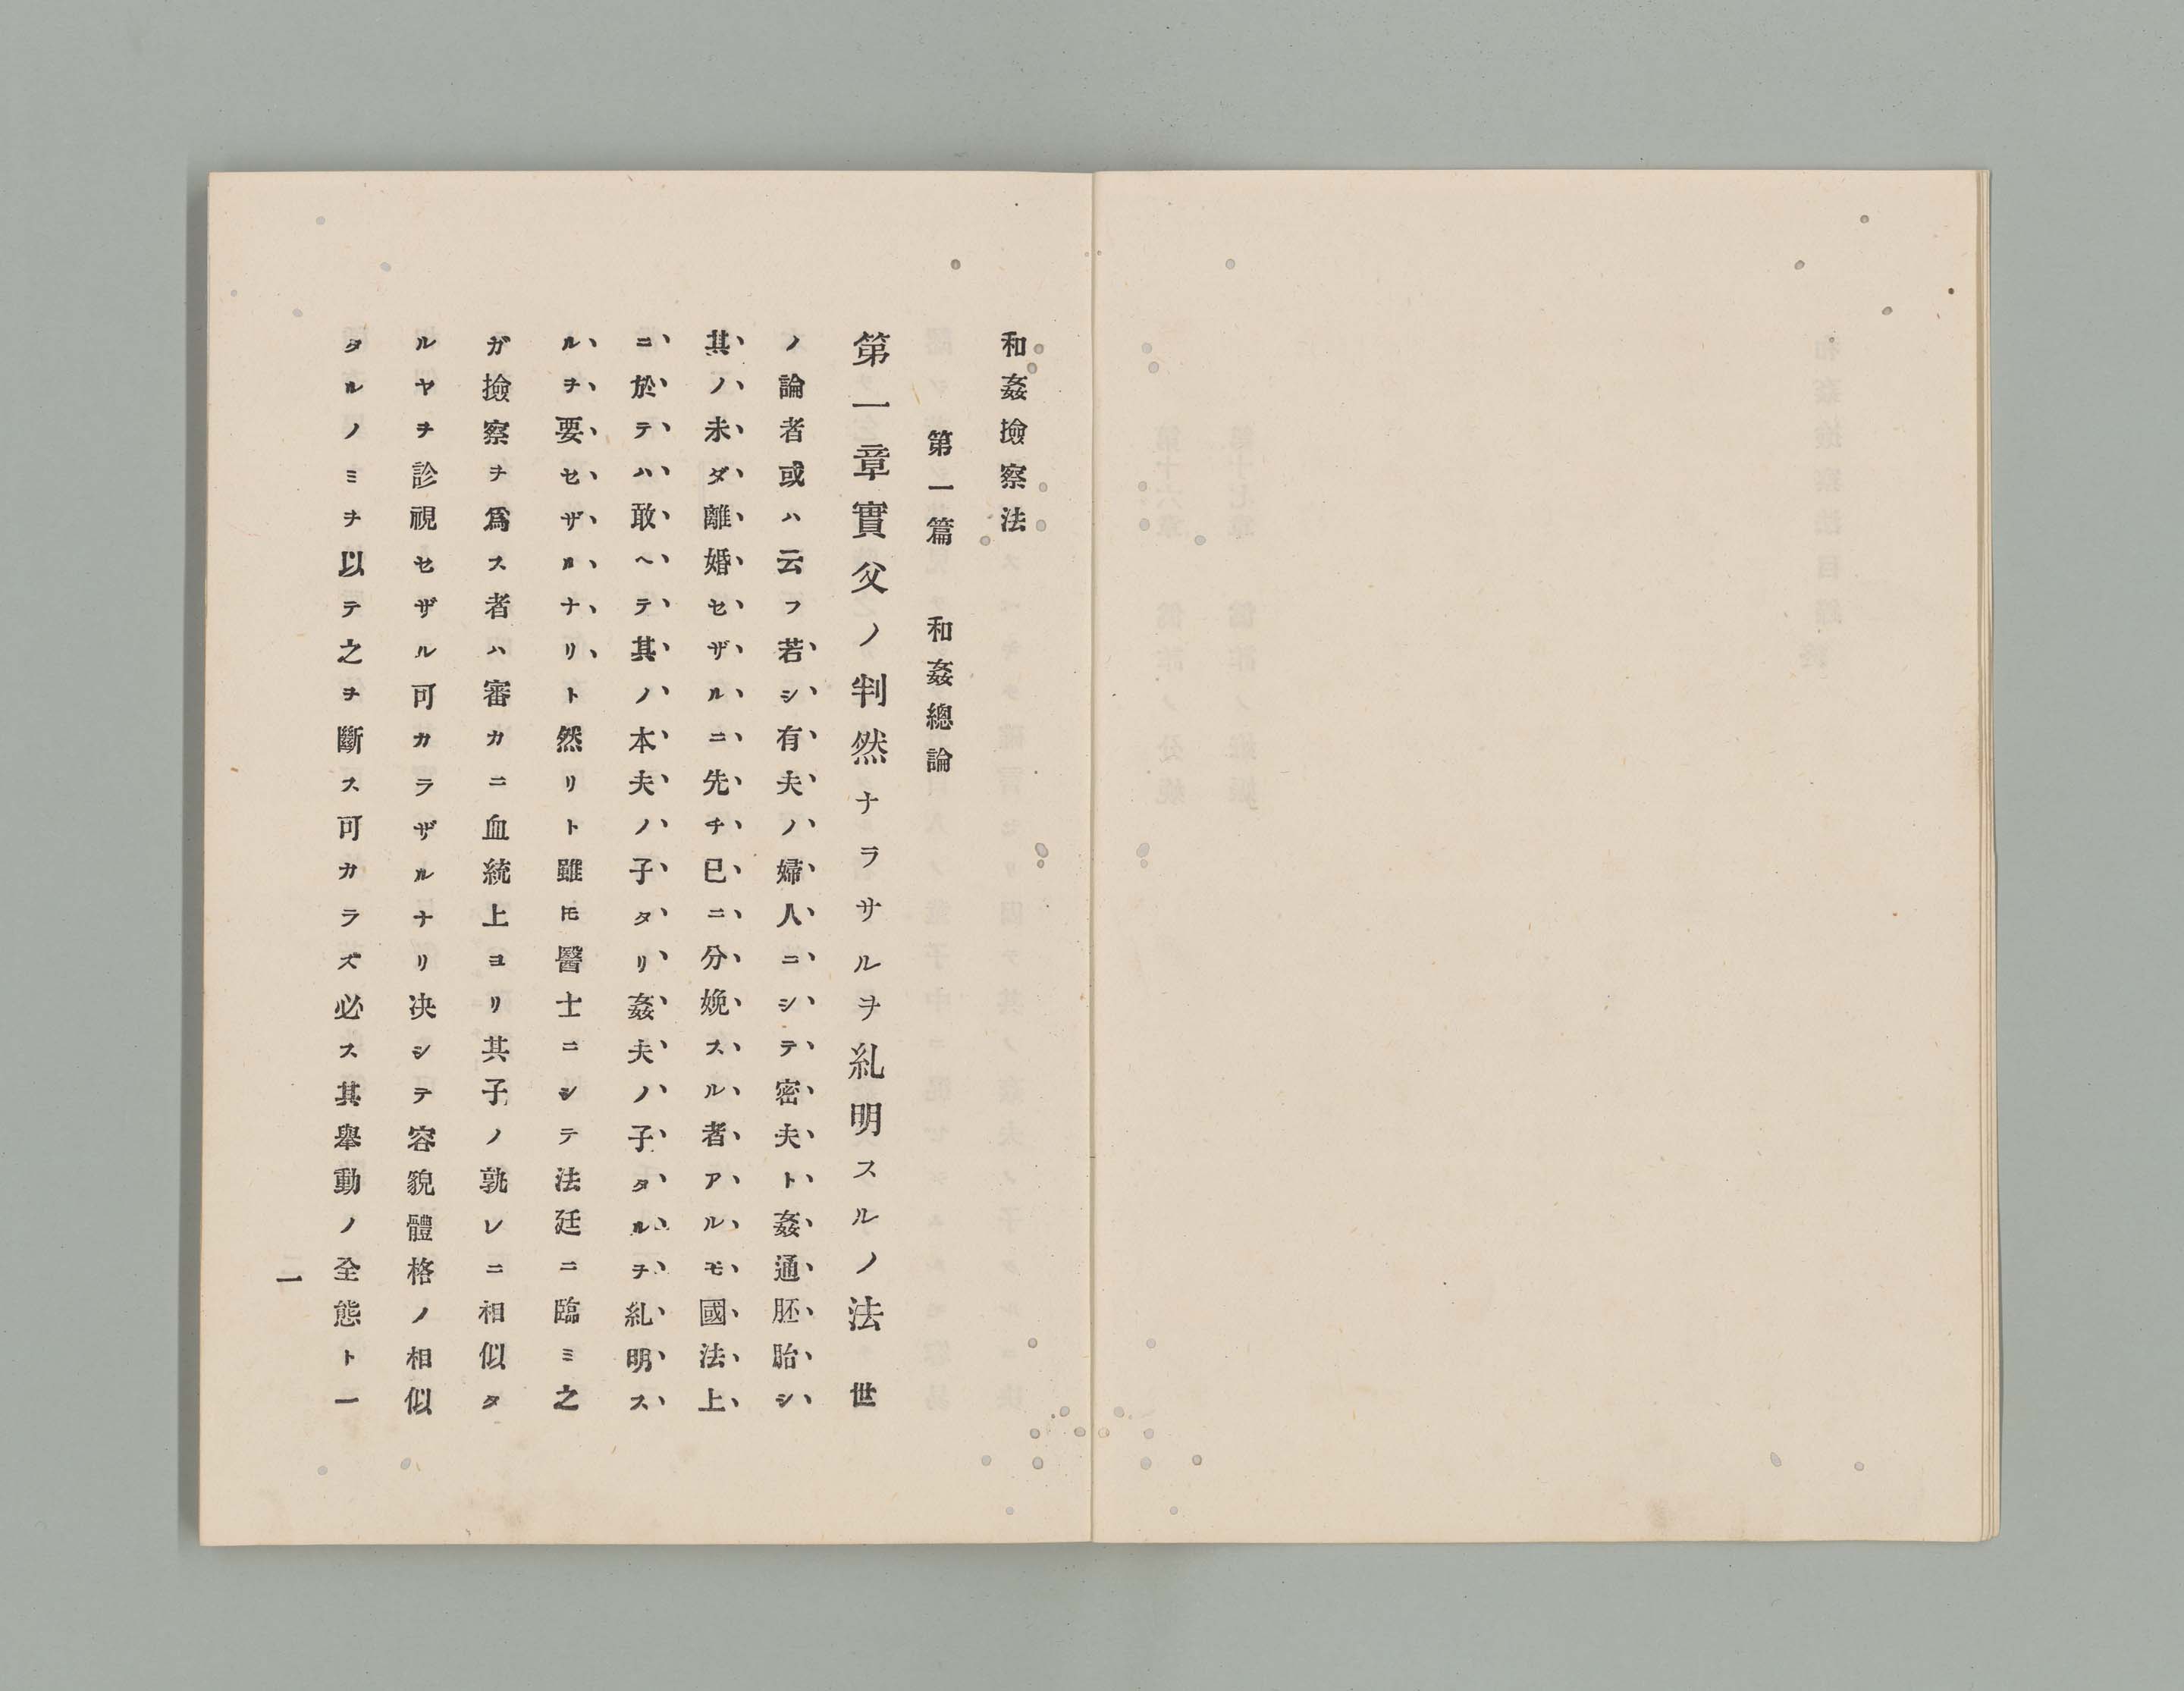 和姦撿察法
第一篇　和姦總論
第一章實父ノ判然ナラサルヲ糺明スルノ法　世
ノ論者或ハ云フ若シ有夫ノ婦人ニシテ密夫ト姦通胚胎シ
其ノ未ダ離婚セザルニ先チ巳ニ分娩スル者アルモ國法上
ニ於テハ敢ヘテ其ノ本夫ノ子タリ姦夫ノ子タルヲ糺明ス
ルヲ要セザルナリト然リト雖モ醫士ニシテ法廷ニ臨ミ之
ガ撿察ヲ爲ス者ハ審カニ血統上ヨリ其子ノ孰レニ相似タ
ルヤヲ診視セザル可カラザルナリ决シテ容貌體格ノ相似
タルノミヲ以テ之ヲ斷ス可カラズ必ス其舉動ノ全態ト一
一